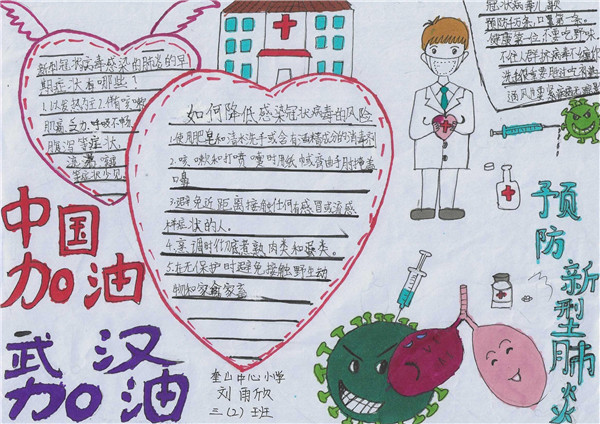 新型冠状病毒感染的肺炎的早
期症状有哪些？
1.以发热为主、偶有咳嗽
肌痛、乏力、呼吸不畅
腹泻等症状，
流涕、咳
等症状少见
如何降低感染冠状病毒的风险
1.使用肥皂和清水洗手或含有酒精成分的消毒剂
2.咳嗽和打喷嚏时用纸巾或弯曲手肘掩盖
口鼻
3.避免近距离接触任何有感冒或流感
样症状的人。
4.烹调时彻底煮熟肉类和蛋类。
5.在无保护时避免接触野生动
物和家禽家畜
冠状病毒儿歌
预防肺炎，口罩第一条。
健康第一位，不要吃野味，
不往人群挤，病毒不
中国
加油
武汉
加油
预防
新型肺炎
奎山中心小学
刘雨欣
三(2)班